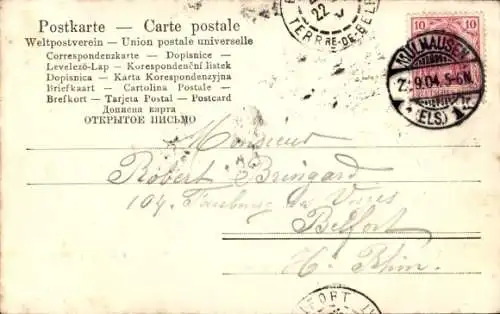 Postkarte — Carte postale
Weltpostverein - Union postale universelle
Correspondenzkarte — Dopisnice
Levelező-Lap — Korespondenční listek
Dopisnica — Karta Korespondenzyjna
Briefkaart — Cartolina Postale —
Brefkort - Tarjeta Postal — Postcard
Дописна карта
ОТКРЫТОЕ ПИСЬМО
22
TERRRE-DE-BELF
10 10
MÜLHAUSEN
9.04. 5-6N.
(ELS.)
Monsieur
Robert Bringard
104, Faubourg de
Belfort
Ht Rhin.